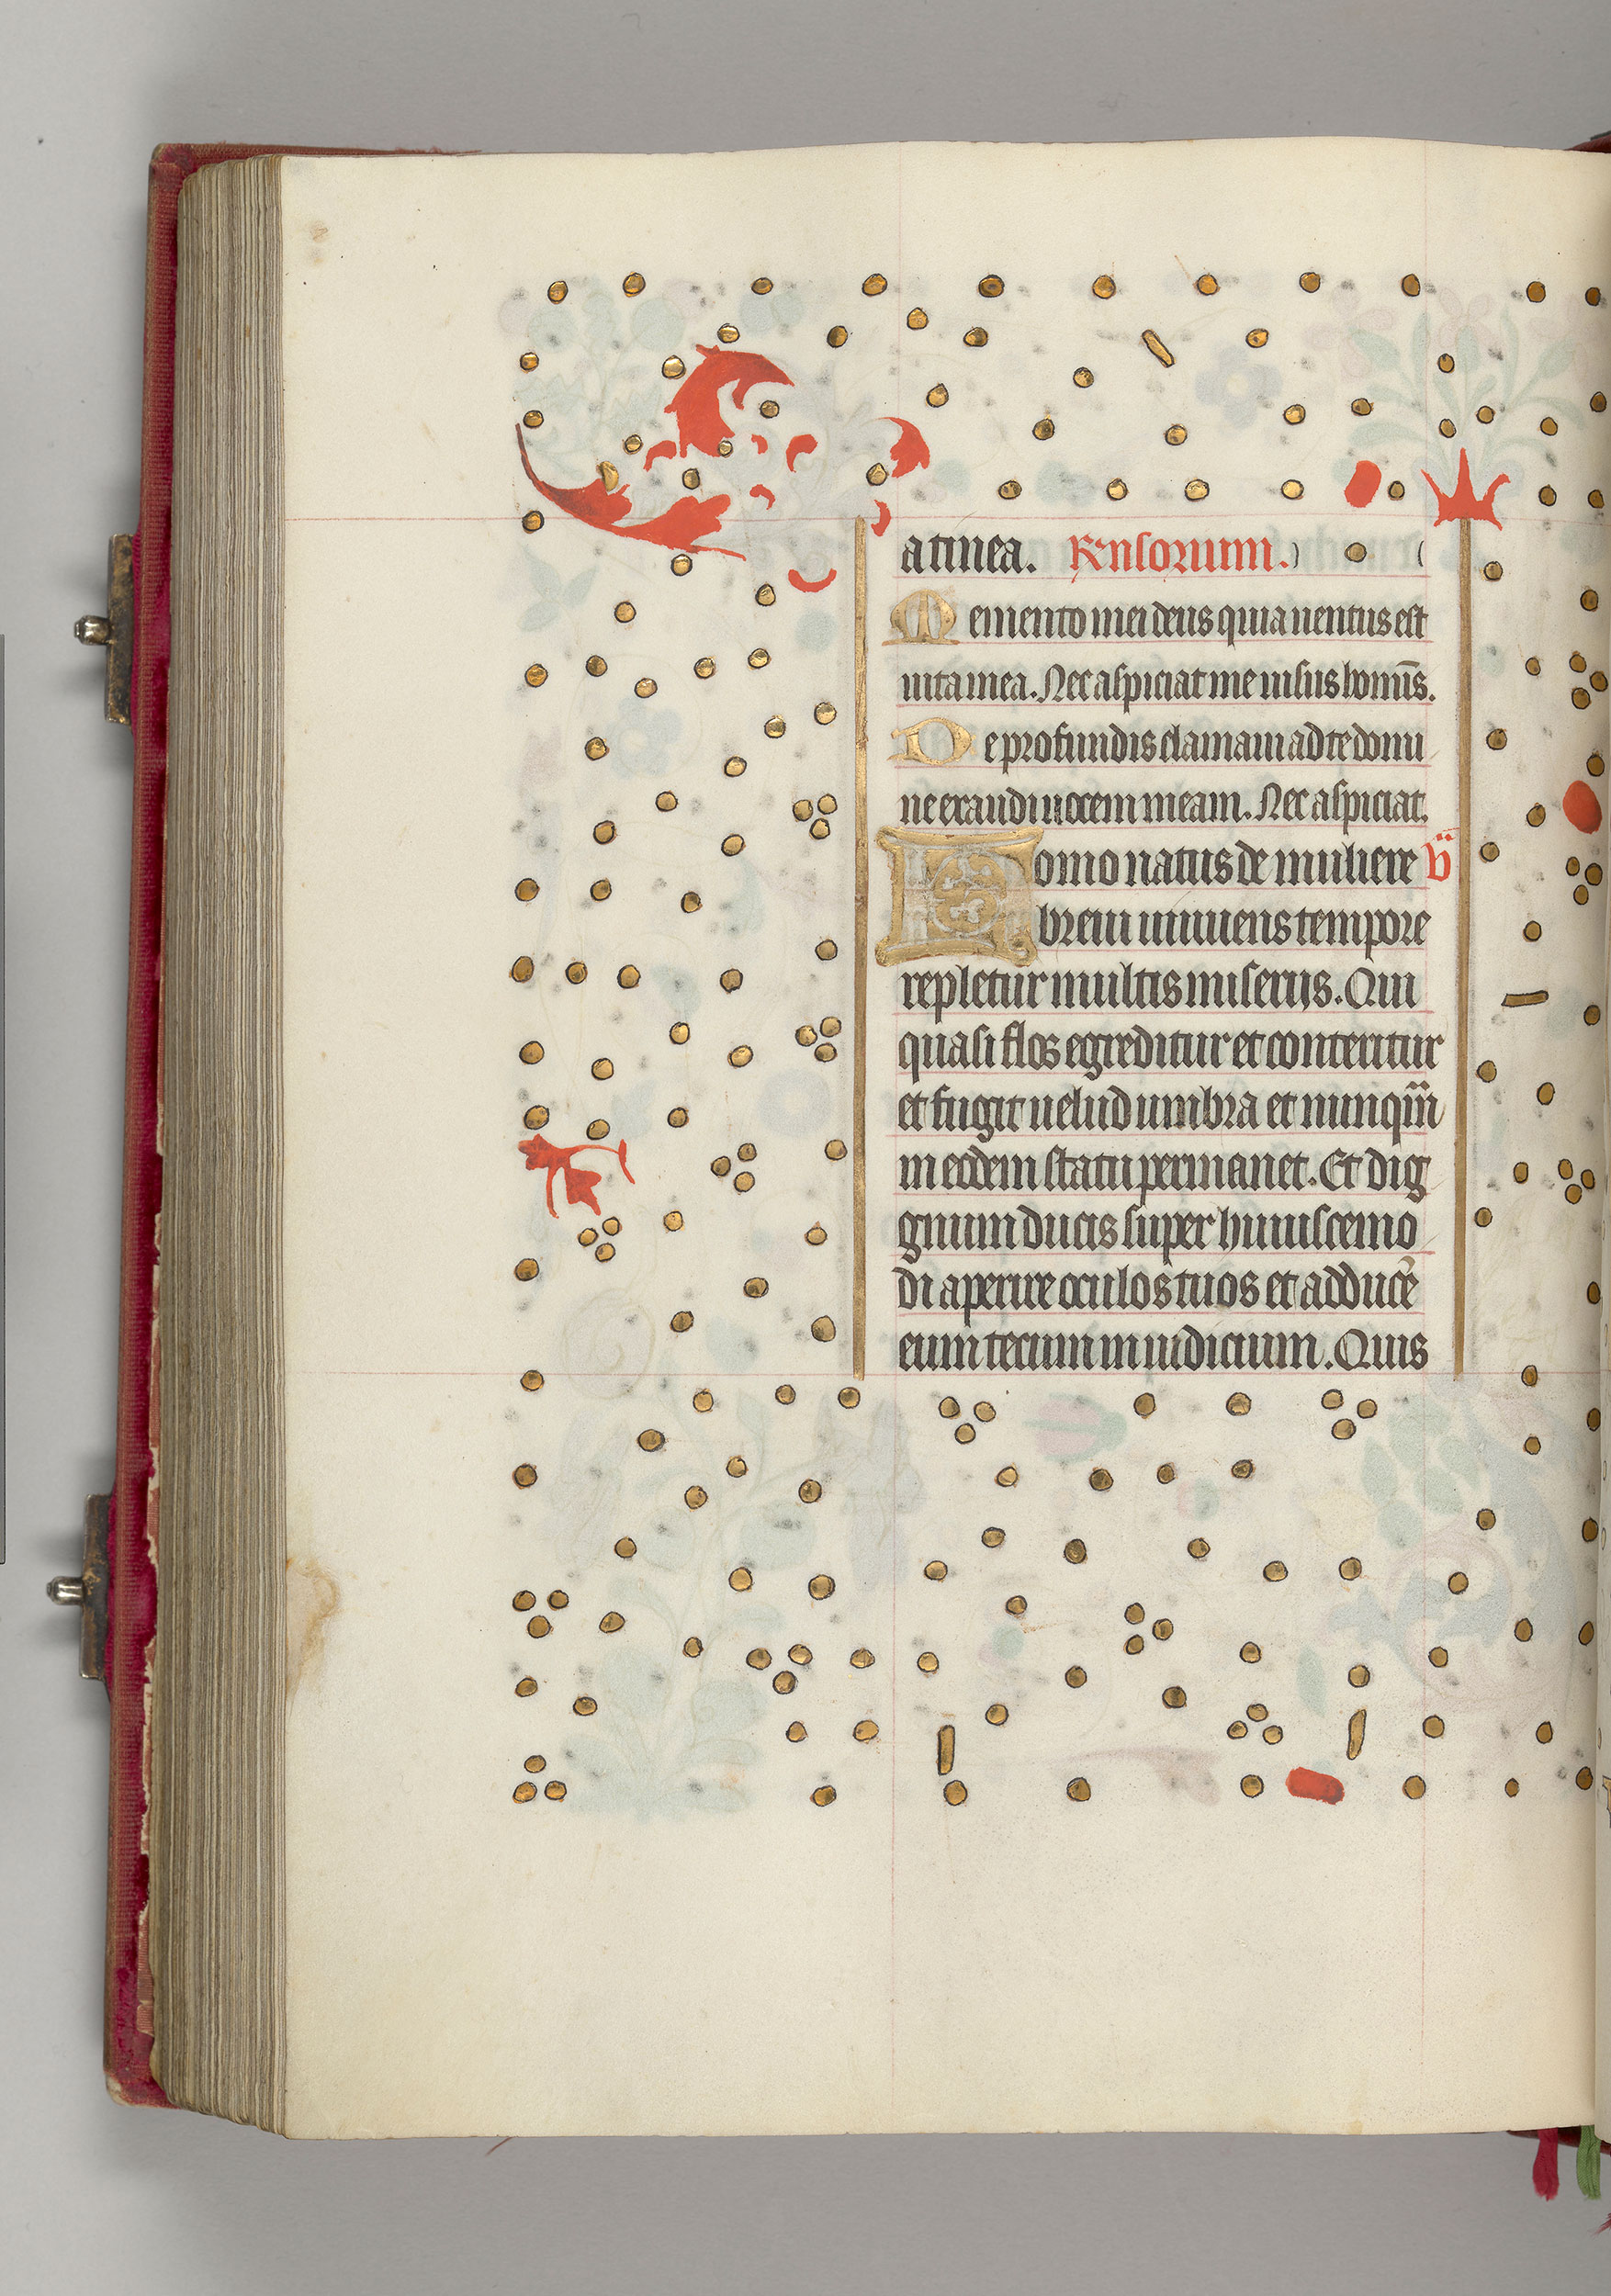 a mea. Responsorium.
Memento mei deus quia uentus est
uita mea. Nec aspiciat me uisus homīs.
De profundis clamaui ad te domi
ne exaudi uocem meam. Nec aspiciat.
Homo natus de muliere v̈
breui uiuens tempore
repletur multis miserijs. Qui
quasi flos egreditur et conteritur
et fugit uelud umbra et nunqm̄
in eodem statu permanet. Et dig
gnum ducis super huiuscemo
di aperire oculos tuos et adducē
eum tecum in iudicium. Quis